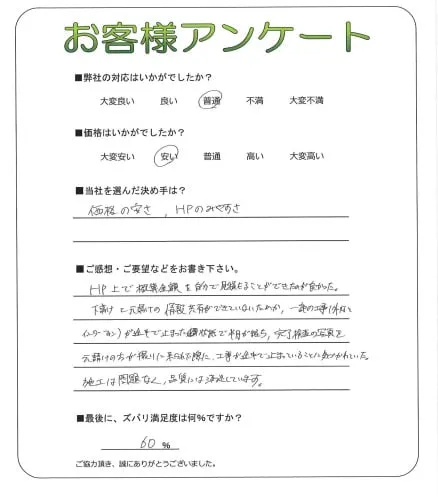 お客様アンケート
■弊社の対応はいかがでしたか？
大変良い 良い 普通 不満 大変不満
■価格はいかがでしたか？
大変安い 安い 普通 高い 大変高い
■当社を選んだ決め手は？
価格の安さ、HPのみやすさ
■ご感想・ご要望などをお書き下さい。
HP上で概算金額を自分で見積もることができたのが良かった。
下請けと元請けの情報共有ができていないためか、一部の工事(外柱と
インターフォン)が途中で止まった状態で何日が経ち、完了検査の写真を
元請けの方が撮りに来られた際に、工事が途中で止まっていることに気づかれていた。
施工は問題なく、品質には満足しています。
■最後に、ズバリ満足度は何％ですか？
60 %
ご協力頂き、誠にありがとうございました。